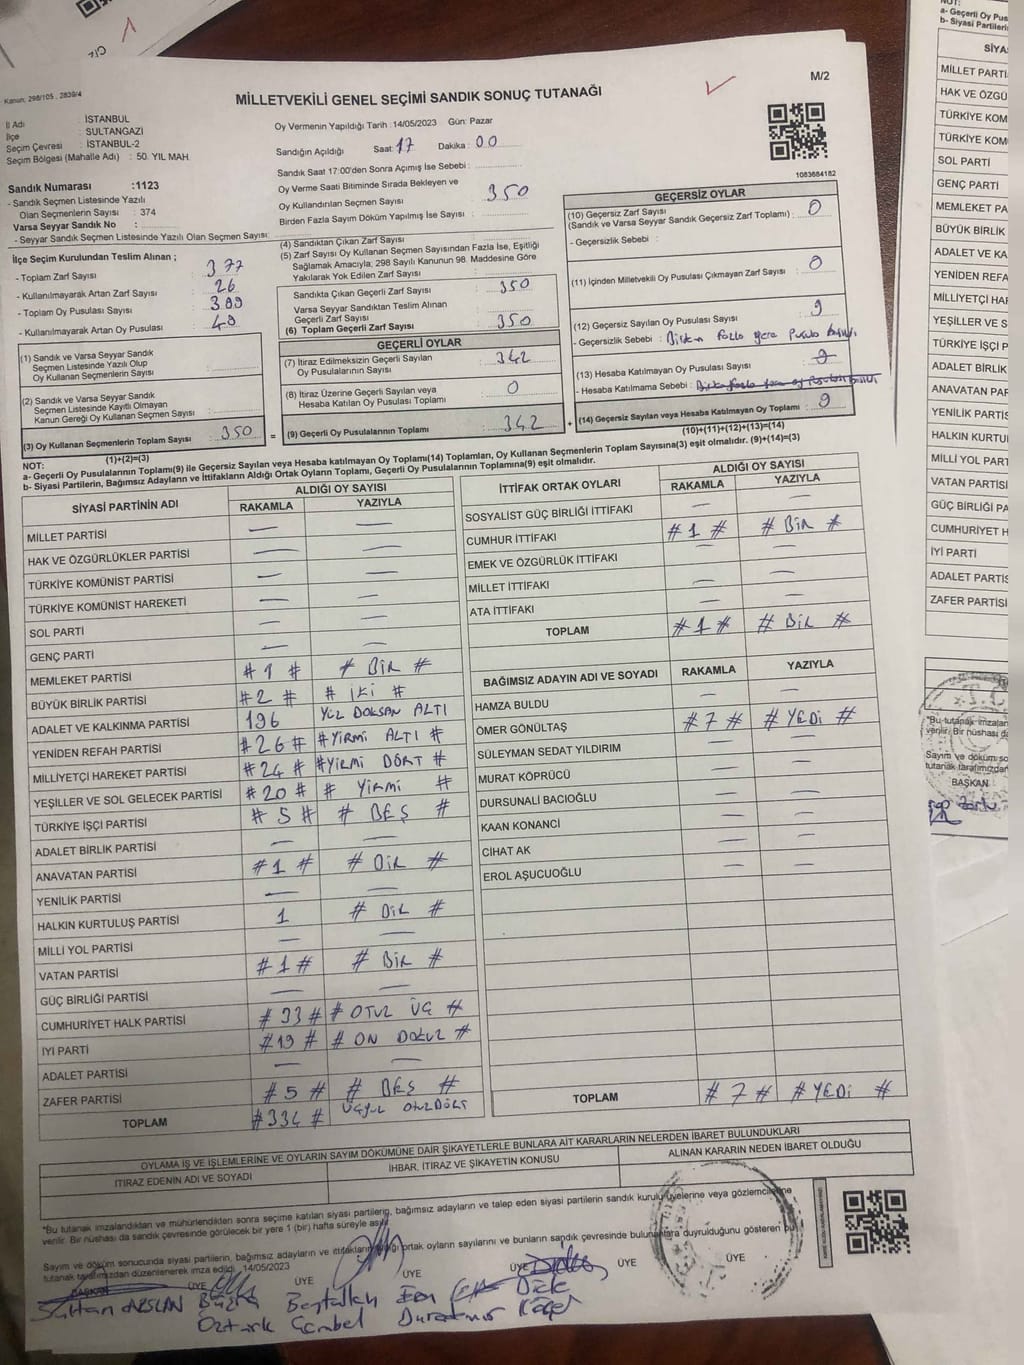 M/2
Kanun, 298/105 , 2839/4
MİLLETVEKİLİ GENEL SEÇİMİ SANDIK SONUÇ TUTANAĞI
İl Adı : İSTANBUL
İlçe : SULTANGAZİ
Seçim Çevresi : İSTANBUL-2
Seçim Bölgesi (Mahalle Adı) : 50. YIL MAH.
Oy Vermenin Yapıldığı Tarih :14/05/2023 Gün: Pazar
Sandığın Açıldığı Saat: 17 Dakika: 00
Sandık Saat 17:00'den Sonra Açımış İse Sebebi :
Oy Verme Saati Bitiminde Sırada Bekleyen ve
Oy Kullandırılan Seçmen Sayısı : 350
Birden Fazla Sayım Döküm Yapılmış İse Sayısı :
1083684182
Sandık Numarası :1123
- Sandık Seçmen Listesinde Yazılı
Olan Seçmenlerin Sayısı : 374
Varsa Seyyar Sandık No :
- Seyyar Sandık Seçmen Listesinde Yazılı Olan Seçmen Sayısı:
İlçe Seçim Kurulundan Teslim Alınan ;
- Toplam Zarf Sayısı : 377
- Kullanılmayarak Artan Zarf Sayısı : 26
- Toplam Oy Pusulası Sayısı : 399
- Kullanılmayarak Artan Oy Pusulası : 49
(1) Sandık ve Varsa Seyyar Sandık
Seçmen Listesinde Yazılı Olup
Oy Kullanan Seçmenlerin Sayısı :
(2) Sandık ve Varsa Seyyar Sandık
Seçmen Listesinde Kayıtlı Olmayan
Kanun Gereği Oy Kullanan Seçmen Sayısı :
(3) Oy Kullanan Seçmenlerin Toplam Sayısı : 350
(1)+(2)=(3)
(4) Sandıktan Çıkan Zarf Sayısı :
(5) Zarf Sayısı Oy Kullanan Seçmen Sayısından Fazla İse, Eşitliği
Sağlamak Amacıyla, 298 Sayılı Kanunun 98. Maddesine Göre
Yakılarak Yok Edilen Zarf Sayısı :
Sandıkta Çıkan Geçerli Zarf Sayısı : 350
Varsa Seyyar Sandıktan Teslim Alınan
Geçerli Zarf Sayısı :
(6) Toplam Geçerli Zarf Sayısı : 350
GEÇERLİ OYLAR
(7) İtiraz Edilmeksizin Geçerli Sayılan
Oy Pusulalarının Sayısı : 342
(8) İtiraz Üzerine Geçerli Sayılan veya
Hesaba Katılan Oy Pusulası Toplamı : 0
= (9) Geçerli Oy Pusulalarının Toplamı : 342 +
GEÇERSİZ OYLAR
(10) Geçersiz Zarf Sayısı
(Sandık ve Varsa Seyyar Sandık Geçersiz Zarf Toplamı) : 0
- Geçersizlik Sebebi :
(11) İçinden Milletvekili Oy Pusulası Çıkmayan Zarf Sayısı : 0
(12) Geçersiz Sayılan Oy Pusulası Sayısı : 9
- Geçersizlik Sebebi :
(13) Hesaba Katılmayan Oy Pusulası Sayısı :
- Hesaba Katılmama Sebebi :
(14) Geçersiz Sayılan veya Hesaba Katılmayan Oy Toplamı : 9
(10)+(11)+(12)+(13)=(14)
NOT:
a- Geçerli Oy Pusulaların Toplamı(9) ile Geçersiz Sayılan veya Hesaba katılmayan Oy Toplamı(14) Toplamları, Oy Kullanan Seçmenlerin Toplam Sayısına(3) eşit olmalıdır. (9)+(14)=(3)
b- Siyasi Partilerin, Bağımsız Adayların ve İttifakların Aldığı Ortak Oyların Toplamı, Geçerli Oy Pusulalarının Toplamına(9) eşit olmalıdır.
SİYASİ PARTİNİN ADI ALDIĞI OY SAYISI
RAKAMLA YAZIYLA
MİLLET PARTİSİ — —
HAK VE ÖZGÜRLÜKLER PARTİSİ — —
TÜRKİYE KOMÜNİST PARTİSİ — —
TÜRKİYE KOMÜNİST HAREKETİ — —
SOL PARTİ — —
GENÇ PARTİ — —
MEMLEKET PARTİSİ # 1 # # BİR #
BÜYÜK BİRLİK PARTİSİ # 2 # # İKİ #
ADALET VE KALKINMA PARTİSİ 196 YÜZ DOKSAN ALTI
YENİDEN REFAH PARTİSİ # 26 # # YİRMİ ALTI #
MİLLİYETÇİ HAREKET PARTİSİ # 24 # # YİRMİ DÖRT #
YEŞİLLER VE SOL GELECEK PARTİSİ # 20 # # YİRMİ #
TÜRKİYE İŞÇİ PARTİSİ # 5 # # BEŞ #
ADALET BİRLİK PARTİSİ — —
ANAVATAN PARTİSİ # 1 # # BİR #
YENİLİK PARTİSİ — —
HALKIN KURTULUŞ PARTİSİ 1 # BİR #
MİLLİ YOL PARTİSİ — —
VATAN PARTİSİ # 1 # # BİR #
GÜÇ BİRLİĞİ PARTİSİ — —
CUMHURİYET HALK PARTİSİ # 33 # # OTUZ ÜÇ #
İYİ PARTİ # 19 # # ON DOKUZ #
ADALET PARTİSİ — —
ZAFER PARTİSİ # 5 # # BEŞ #
TOPLAM # 334 # ÜÇYÜZ OTUZDÖRT
İTTİFAK ORTAK OYLARI ALDIĞI OY SAYISI
RAKAMLA YAZIYLA
SOSYALİST GÜÇ BİRLİĞİ İTTİFAKI — —
CUMHUR İTTİFAKI # 1 # # BİR #
EMEK VE ÖZGÜRLÜK İTTİFAKI — —
MİLLET İTTİFAKI — —
ATA İTTİFAKI — —
TOPLAM # 1 # # BİR #
BAĞIMSIZ ADAYIN ADI VE SOYADI RAKAMLA YAZIYLA
HAMZA BULDU — —
ÖMER GÖNÜLTAŞ # 7 # # YEDİ #
SÜLEYMAN SEDAT YILDIRIM — —
MURAT KÖPRÜCÜ — —
DURSUNALİ BACIOĞLU — —
KAAN KONANCİ — —
CİHAT AK — —
EROL AŞUCUOĞLU — —
TOPLAM # 7 # # YEDİ #
OYLAMA İŞ VE İŞLEMLERİNE VE OYLARIN SAYIM DÖKÜMÜNE DAİR ŞİKAYETLERLE BUNLARA AİT KARARLARIN NELERDEN İBARET BULUNDUKLARI
İTİRAZ EDENİN ADI VE SOYADI İHBAR, İTİRAZ VE ŞİKAYETİN KONUSU ALINAN KARARIN NEDEN İBARET OLDUĞU
*Bu tutanak imzalandıktan ve mühürlendikten sonra seçime katılan siyasi partilerin, bağımsız adayların ve talep eden siyasi partilerin sandık kurulu üyelerine veya gözlemcilerine
verilir. Bir nüshası da sandık çevresinde görülecek bir yere 1 (bir) hafta süreyle asılır.
Sayım ve döküm sonucunda siyasi partilerin, bağımsız adayların ve ittifakların aldığı ortak oyların sayılarını ve bunların sandık çevresinde bulunanlara duyrulduğunu gösteren bu
tutanak tarafımızdan düzenlenerek imza edildi. 14/05/2023
BAŞKAN ÜYE ÜYE ÜYE ÜYE ÜYE ÜYE
Sultan ARSLAN
Öztürk